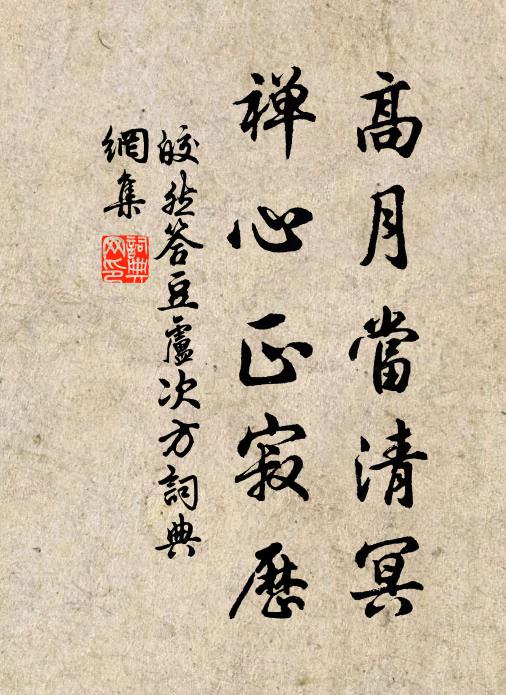 高月當清冥
禅心正寂歷
皎然答豆盧次方詞典
網集
詞典
网印